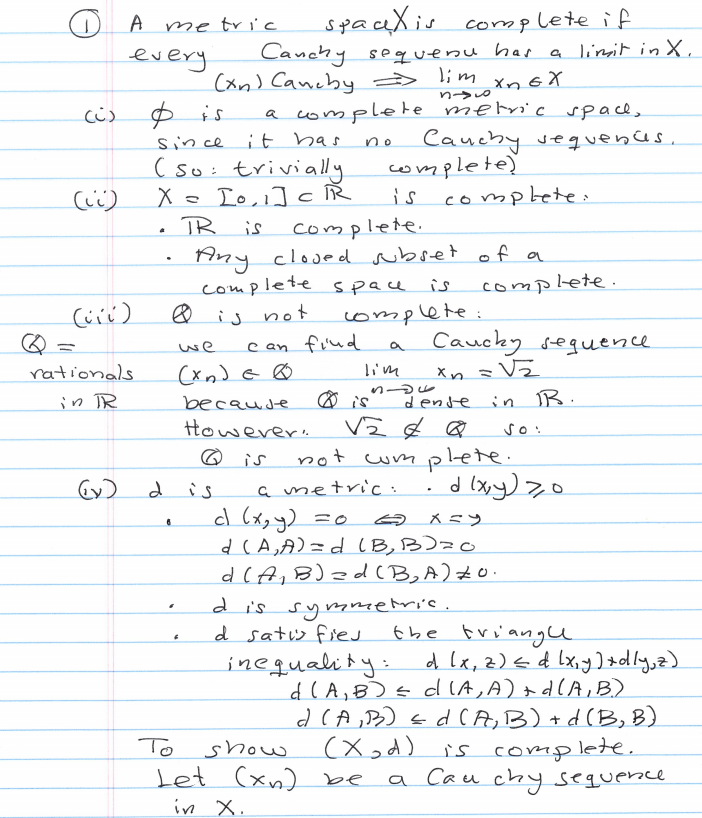 ① A metric space X is complete if
every Cauchy sequence has a limit in X.
(xn) Cauchy ⟹ lim n→∞ xn ∈ X
(i) ϕ is a complete metric space,
since it has no Cauchy sequences.
(so: trivially complete)
(ii) X = [0,1] ⊂ ℝ is complete:
· ℝ is complete.
· Any closed subset of a
complete space is complete.
(iii) ℚ is not complete:
ℚ = we can find a Cauchy sequence
rationals (xn) ∈ ℚ lim n→∞ xn = √2
in ℝ because ℚ is dense in ℝ.
However: √2 ∉ ℚ so:
ℚ is not complete.
(iv) d is a metric: · d(x,y) ⩾ 0
· d(x,y) = 0 ⇔ x = y
d(A,A) = d(B,B) = 0
d(A,B) = d(B,A) ≠ 0.
· d is symmetric.
· d satisfies the triangle
inequality: d(x,z) ≤ d(x,y)+d(y,z)
d(A,B) ≤ d(A,A) + d(A,B)
d(A,B) ≤ d(A,B) + d(B,B)
To show (X,d) is complete.
Let (xn) be a Cauchy sequence
in X.